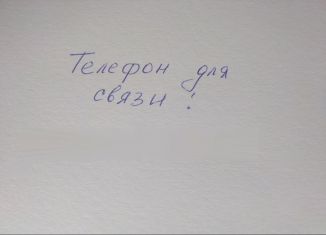 Телефон для
связи :